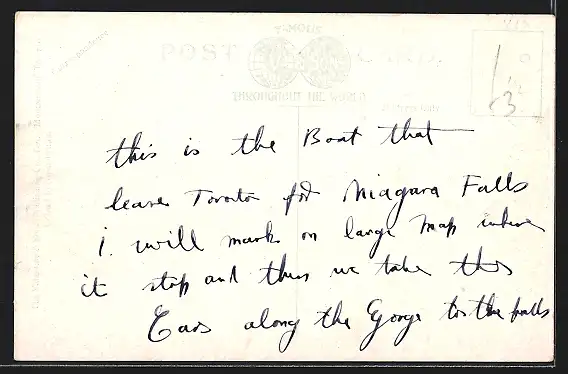 FAMOUS
POST CARD
THROUGHOUT THE WORLD
Correspondence
this is the Boat that
leave Toronto for Niagara Falls
i will mark on large map where
it stop and then we take the
Cars along the Gorge to the falls